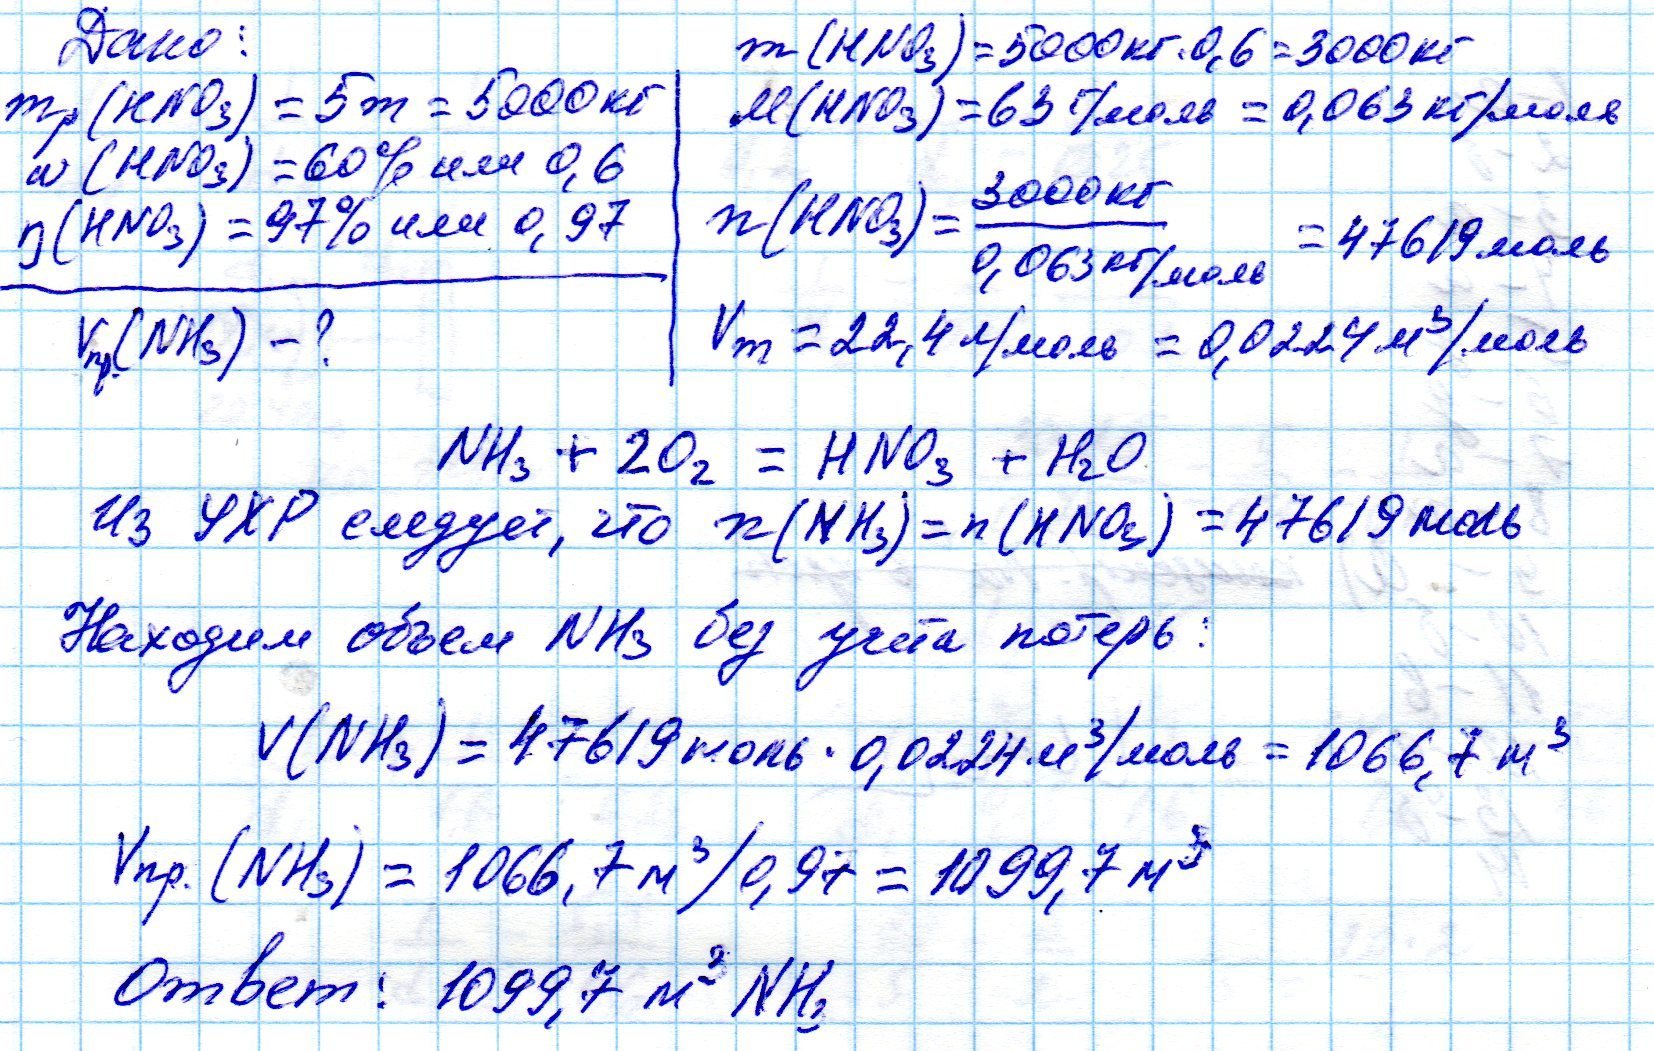 Дано:
mр(HNO3) = 5т = 5000кг
w(HNO3) = 60% или 0,6
η(HNO3) = 97% или 0,97
Vпр.(NH3) - ?
m(HNO3) = 5000кг·0,6 = 3000кг
M(HNO3) = 63 г/моль = 0,063 кг/моль
n(HNO3) = 3000кг / 0,063кг/моль = 47619 моль
Vm = 22,4 л/моль = 0,0224 м³/моль
NH3 + 2O2 = HNO3 + H2O
Из УХР следует, что n(NH3) = n(HNO3) = 47619 моль
Находим объем NH3 без учета потерь:
V(NH3) = 47619 моль · 0,0224 м³/моль = 1066,7 м³
Vпр.(NH3) = 1066,7 м³/0,97 = 1099,7 м³
Ответ: 1099,7 м³ NH3